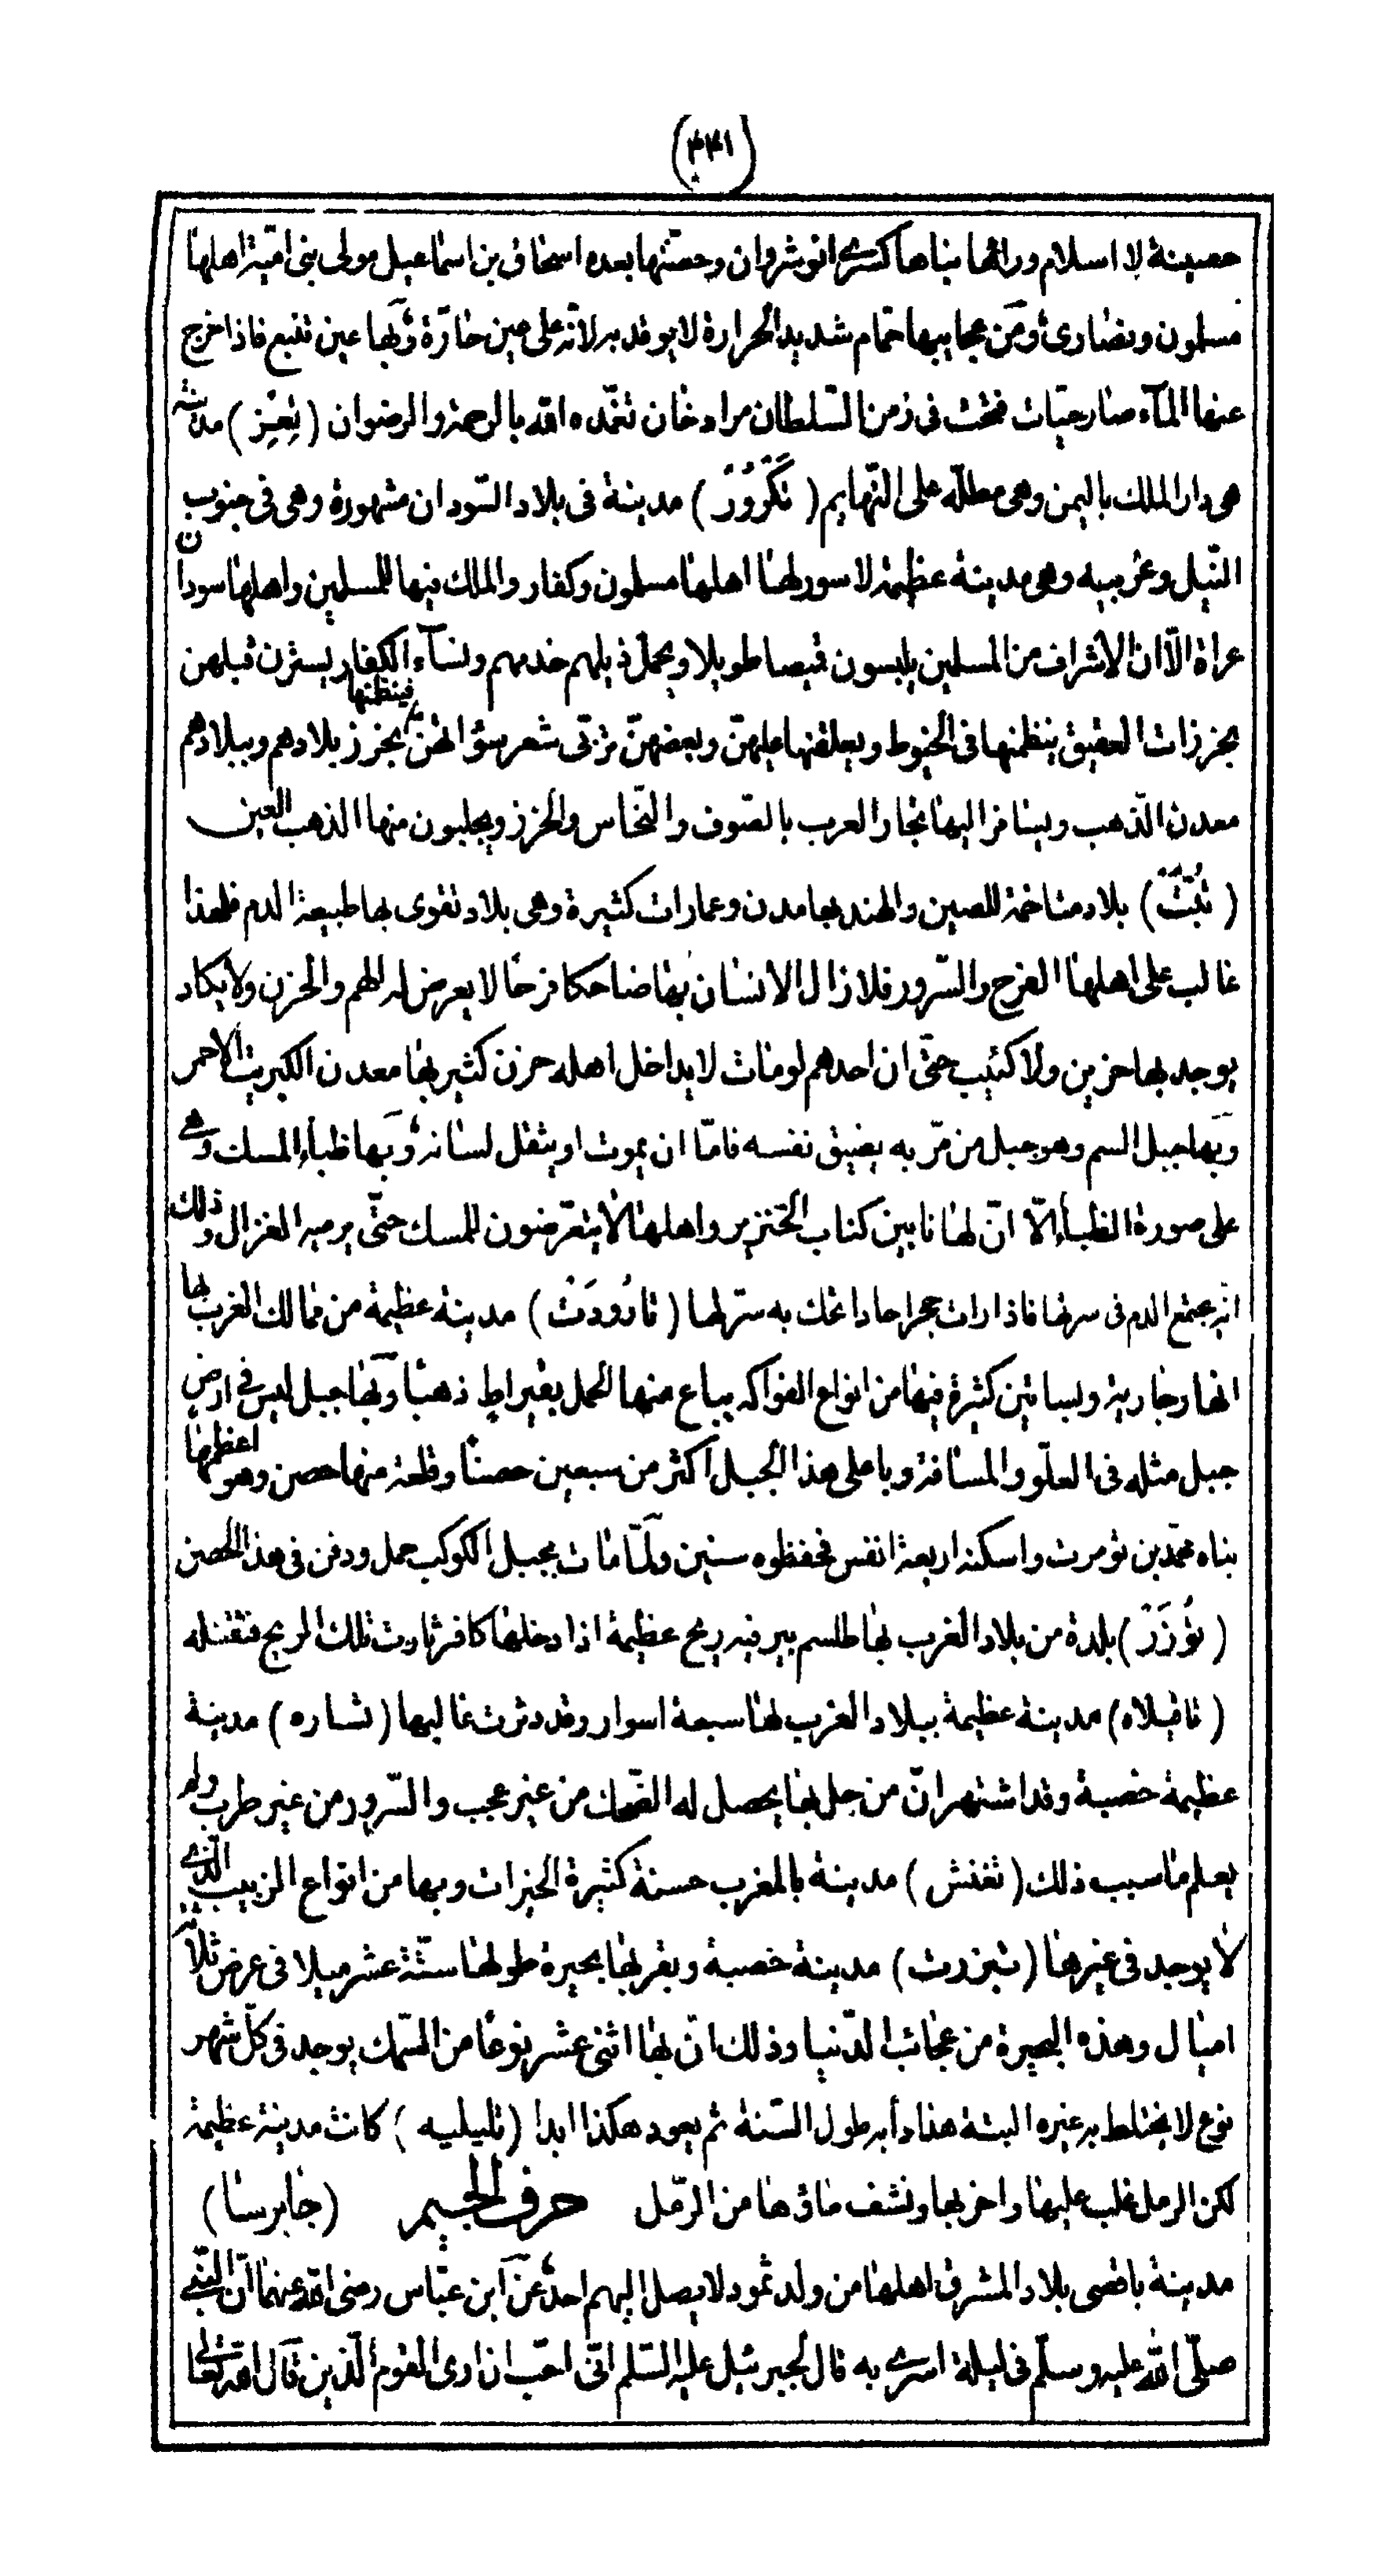 (٤٤١)
حصينة لا اسلام ورائها بناها كسرى انوشروان وحصنها بعده اسحاق بن اسماعيل مولى بنى امية اهلها
مسلمون ونصارى ومن عجايبها حمام شديد الحرارة لا يوقد به لانه على عين حارة وبها عين تنبع فاذا خرج
عنها المآء صار حيات فتحت فى زمن السلطان مراد خان تغمده الله بالرحمة والرضوان (تعِز) مدينة
هى دار الملك باليمن وهى مطله على التهايم (تكرور) مدينة فى بلاد السودان مشهورة وهى فى جنوب
النيل وغربيه وهى مدينة عظيمة لا سور لها اهلها مسلمون وكفار والملك فيها للمسلمين واهلها سودان
عراة الا ان الاشراف من المسلمين يلبسون قميصا طويلا ويحمل ذيلهم خدمهم ونسآء الكفار يسترن قبلهن
بخرزات العقيق ينظمنها فى الخيوط ويعلقنها عليهن وبعضهن تربى شعر سؤالهن فينظمنها بخرز بلادهم وببلادهم
معدن الذهب ويسافر اليها تجار العرب بالصوف والنحاس والخرز ويجلبون منها الذهب العين
(تُبَّت) بلاد متاخمة للصين والهند بها مدن وعمارات كثيرة وهى بلاد تقوى بها طبيعة الدم فلهذا
غالب على اهلها الفرح والسرور فلا زال الانسان بها ضاحكا فرحا لا يعرض له الهم والحزن ولا يكاد
يوجد بها حزين ولا كئيب حتى ان احدهم لو مات لا يداخل اهله حزن كثير بها معدن الكبريت الاحمر
وبها جبل السم وهو جبل من مر به يضيق نفسه فاما ان يموت او يثقل لسانه وبها ظباء المسك وهى
على صورة الظباء الا ان لها نابين كناب الخنزير واهلها لا يتعرضون للمسك حتى يرميه الغزال وذلك
انه يجتمع الدم فى سرتها فاذا رات حجرا حادا تحك به سرتها (تارُودَنْت) مدينة عظيمة من ممالك الغرب لها
انهار جارية وبساتين كثيرة فيها من انواع الفواكه يباع منها الحمل بقيراط ذهبا وبها جبل ليس فى ارض
جبل مثله فى العلو والمسافة وباعلى هذا الجبل اكثر من سبعين حصنا وقلعة منها حصن وهو اعظمها
بناه محمد بن تومرت واسكنه اربعة انفس فحفظوه سنين ولما مات بجبل الكوكب حمل ودفن فى هذا الحصن
(تُوزَر) بلدة من بلاد الغرب بها طلسم بير فيه ريح عظيمة اذا دخلها كافر ثارت تلك الريح فتقتله
(تاقيلاه) مدينة عظيمة ببلاد الغرب لها سبعة اسوار وقد دثرت غالبها (تشاره) مدينة
عظيمة خصبة وقد اشتهر ان من حل بها يحصل له الضحك من غير عجب والسرور من غير طرب ولم
يعلم ما سبب ذلك (تغنش) مدينة بالمغرب حسنة كثيرة الخيرات وبها من انواع الزبيب الذى
لا يوجد فى غيرها (تبزرت) مدينة خصبة وبقربها بحيرة طولها ستة عشر ميلا فى عرض ثلاثة
اميال وهذه البحيرة من عجائب الدنيا وذلك ان لها اثنى عشر نوعا من السمك يوجد فى كل شهر
نوع لا يختلط به غيره البتة هذا دأبه طول السنة ثم يعود هكذا ابدا (تليليه) كانت مدينة عظيمة
لكن الرمل غلب عليها واخربها ونشف ماؤها من الرمل حرف الجيم (جابرسا)
مدينة باقصى بلاد المشرق اهلها من ولد ثمود لا يصل اليهم احد عن ابن عباس رضى الله عنهما ان النبى
صلى الله عليه وسلم فى ليلة اسرى به قال لجبرئيل عليه السلم انى احب ان ارى القوم الذين قال الله تعالى